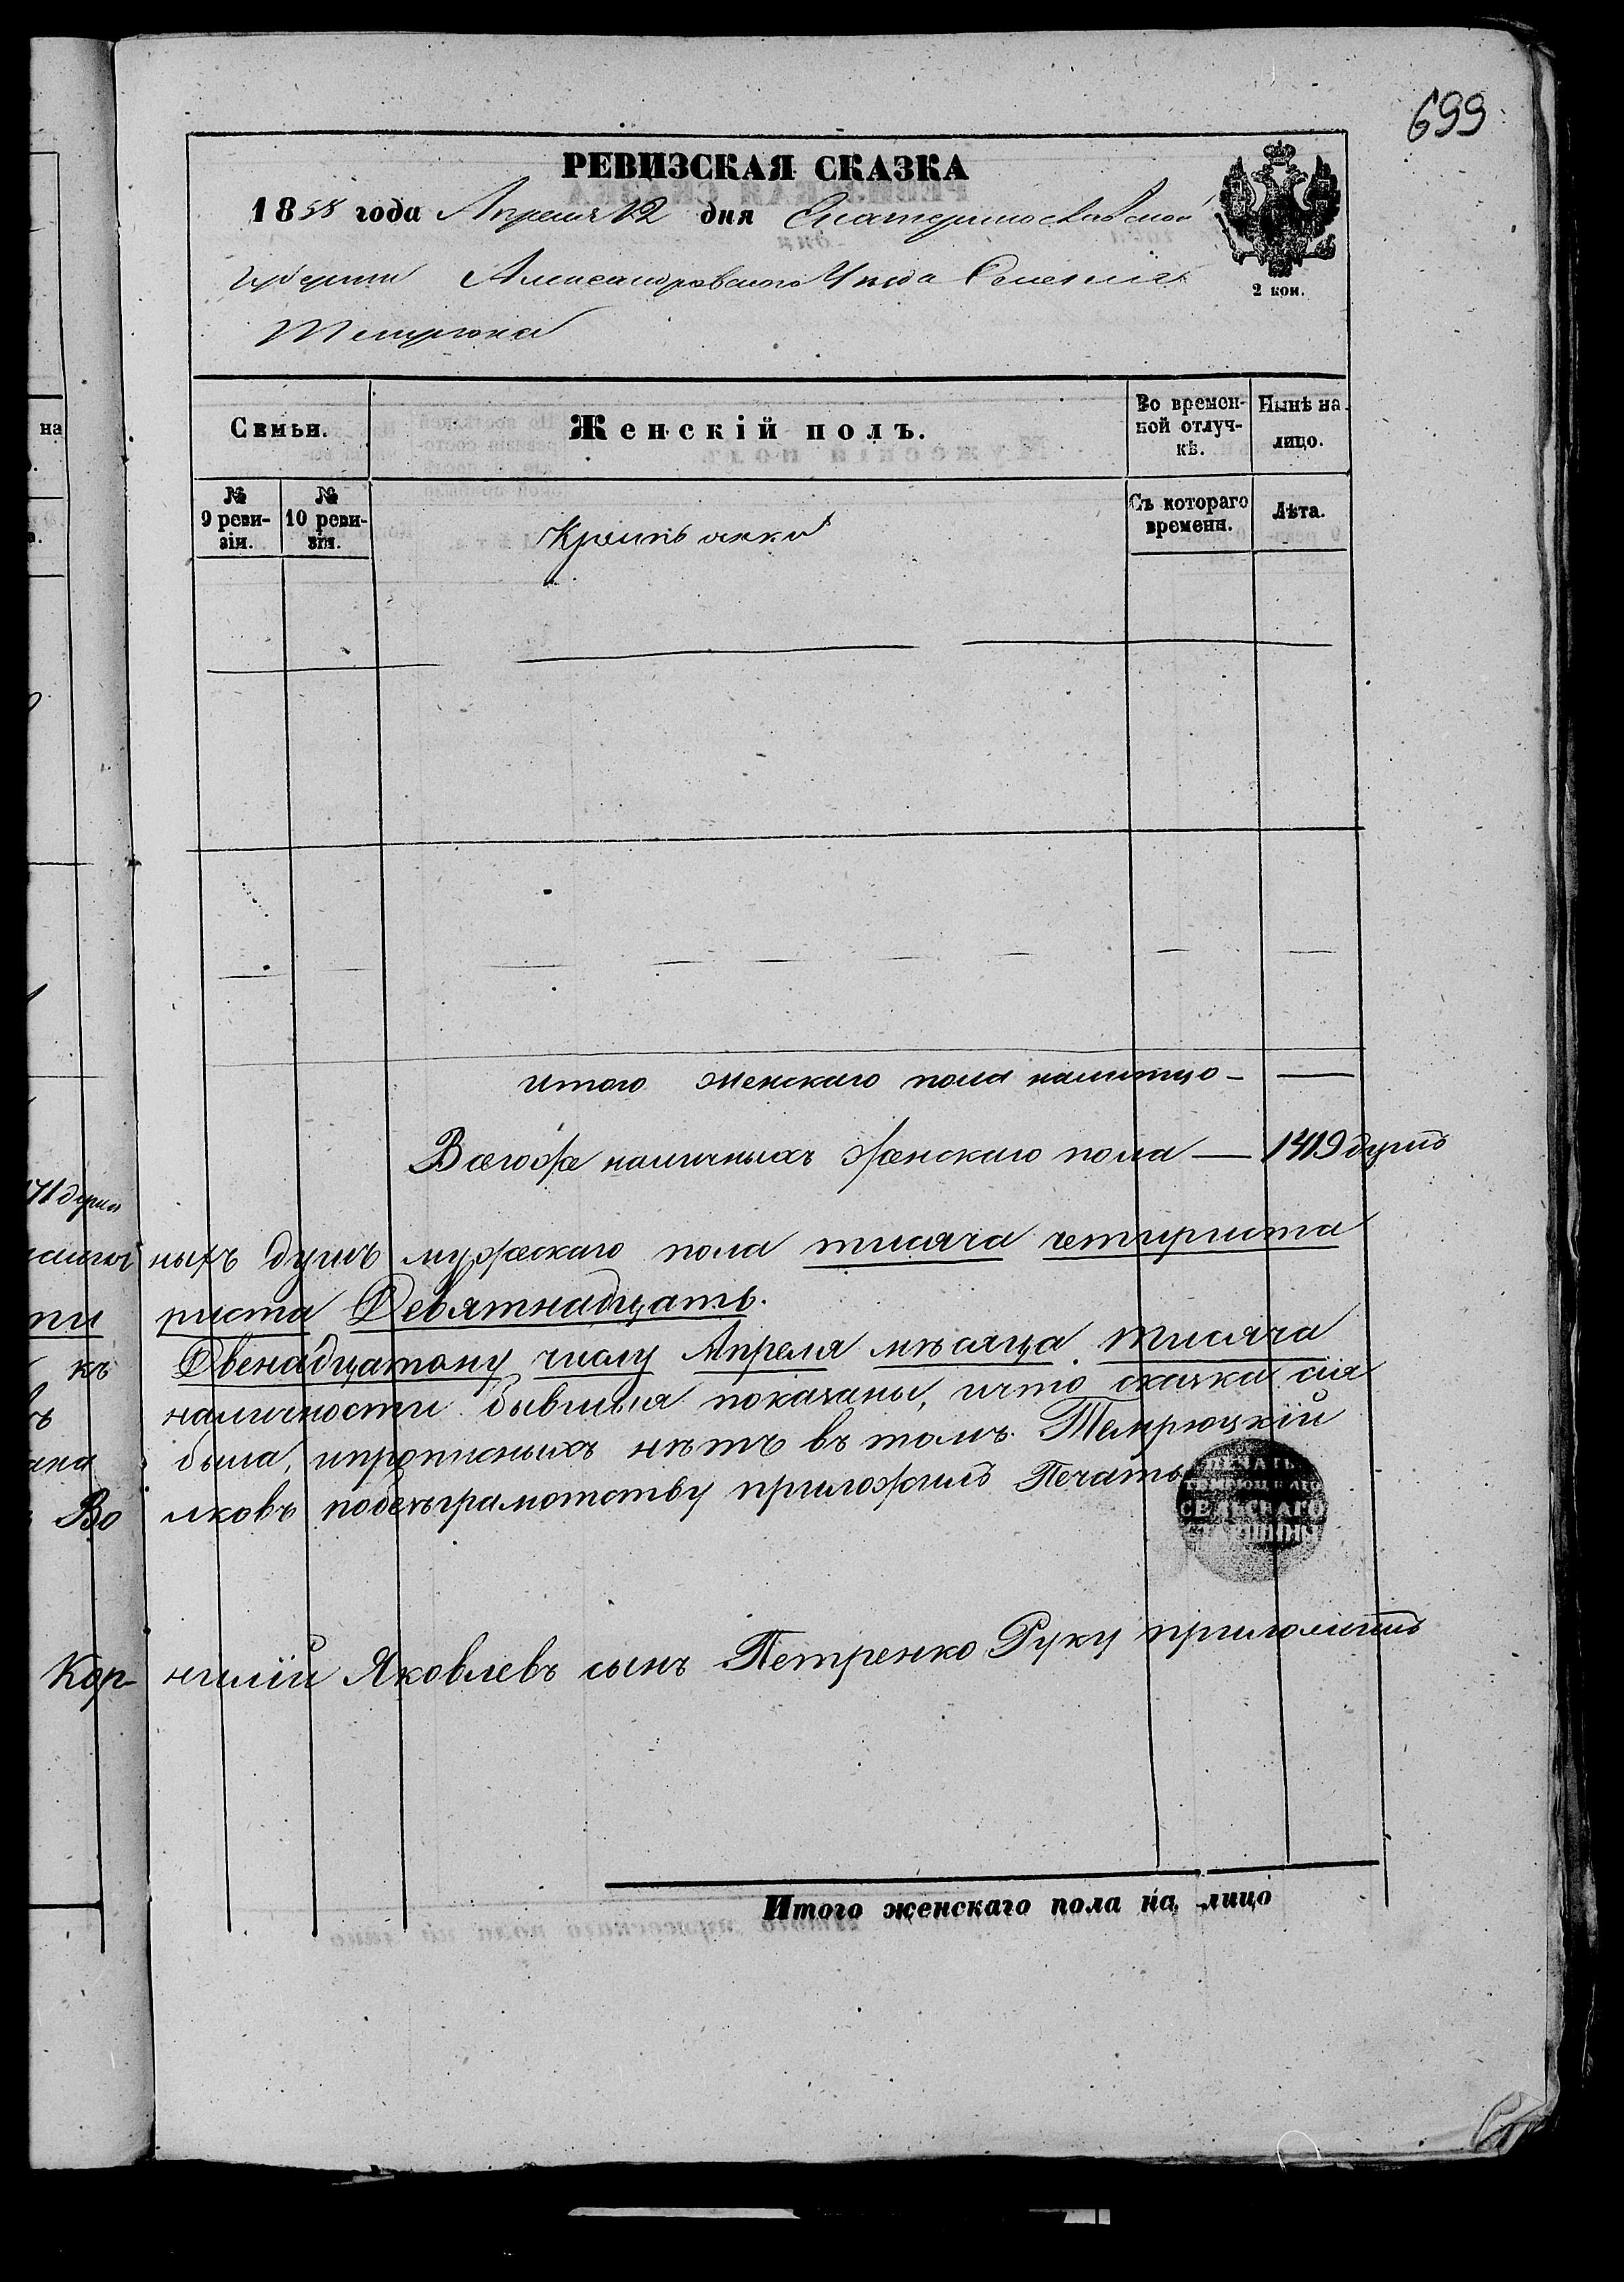 699
РЕВИЗСКАЯ СКАЗКА
1858 года Апреля 12 дня Екатеринославской
Губернии Александровскаго Уезда Селенія
Темрюка
2 коп.
Семьи.
Женскій полъ.
Во времен-
ной отлуч-
кѣ.
Нынѣ на
лицо.
№
9 реви-
зіи.
№
10 реви-
зіи.
Съ котораго
времени.
Лѣта.
на
Итого женскаго пола налитцо —
Всегоже наличныхъ женскаго пола — 1419 душъ
71 душа
ныхъ душъ мужескаго пола тисяча четыриста
ти риста Девятнадцать.
къ Двенадцатому числу Апреля мѣсяца тисяча
наличности бывшыя показаны, ичто скаска сія
была, ипрописныхъ нѣтъ въ томъ. Темрюцкій
Во лковъ побезграмотству приложилъ Печать
ПЕЧАТЬ
ТЕМРЮЦКАГО
СЕЛЬСКАГО
СТАРШИНЫ
Кор- нилій Яковлевъ сынъ Петренко Руку приложилъ
Итого женскаго пола на лицо